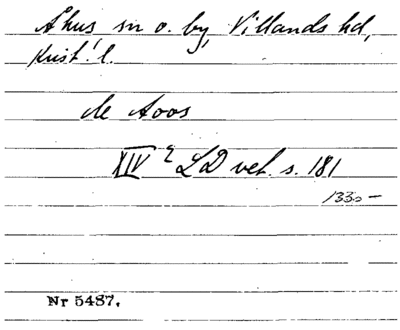 Åhus, sn o. by, Villands hd,
Krist. l.
de Aoos
XIV 2 LD vet. s. 181
1330-
Nr 5487.